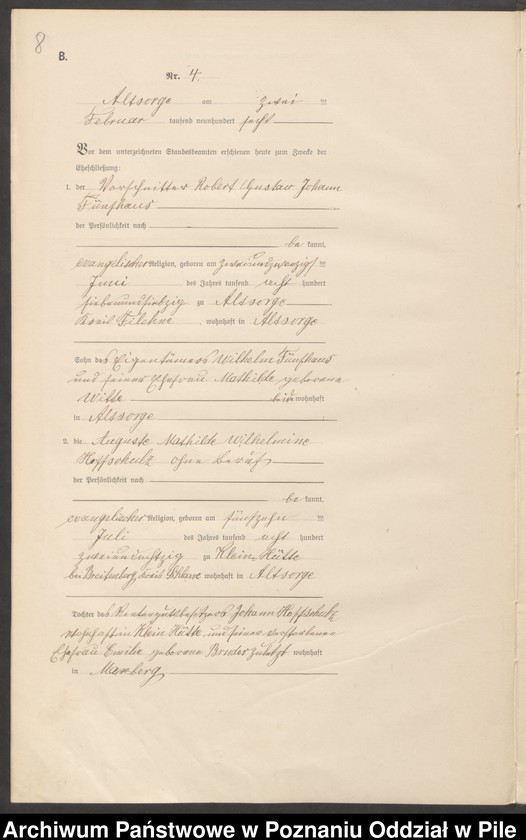 8
B.
Nr. 4.
Altsorge am zwei ten
Februar tausend neunhundert sechs
Vor dem unterzeichneten Standesbeamten erschienen heute zum Zwecke der
Eheschließung:
1. der Vorschnitter Robert Gustav Johann
Fünfhaus
der Persönlichkeit nach
be kannt,
evangelischer Religion, geboren am zweiundzwanzigsten
Juni des Jahres tausend acht hundert
siebenundsiebzig zu Altsorge
Kreis Filehne, wohnhaft in Altsorge
Sohn des Eigentümers Wilhelm Fünfhaus
und seiner Ehefrau Mathilde geborene
Witte beide wohnhaft
in Altsorge
2. die Auguste Mathilde Wilhelmine
Hoffschulz ohne Beruf
der Persönlichkeit nach
be kannt,
evangelischer Religion, geboren am fünfzehn ten
Juli des Jahres tausend acht hundert
zweiundachtzig zu Klein Hütte
bei Kreis wohnhaft in Altsorge
Tochter des Rentengutsbesitzers Johann Hoffschulz
wohnhaft in Klein Hütte und seiner verstorbenen
Ehefrau Emilie geborene zuletzt wohnhaft
in
Archiwum Państwowe w Poznaniu Oddział w Pile